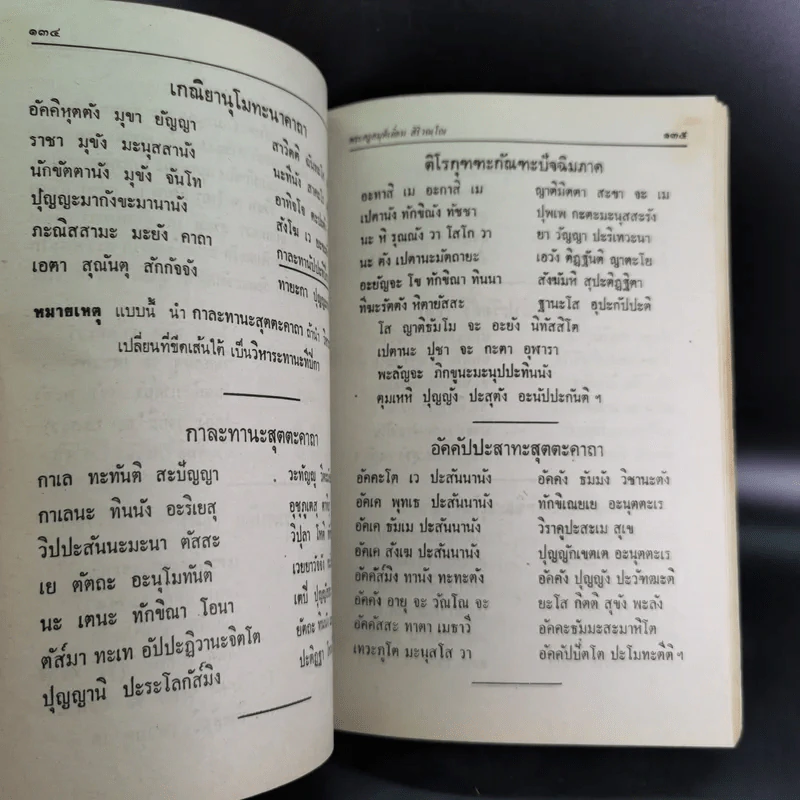 ๑๓๔
เกณิยานุโมทะนาคาถา
อัคคิหุตตัง มุขา ยัญญา สาวิตติ
ราชา มุขัง มะนุสสานัง นะทีนัง
นักขัตตานัง มุขัง จันโท อาทิจโจ
ปุญญะมากังขะมานานัง สังโฆ เว
ภะณิสสามะ มะยัง คาถา กาละทานัปปะทีปิกา
เอตา สุณันตุ สักกัจจัง ทายะกา
หมายเหตุ แบบนี้ นำ กาละทานะสุตตะคาถา ถ้านำ
เปลี่ยนที่ขีดเส้นใต้ เป็นวิหาระทานะทีปิกา
กาละทานะสุตตะคาถา
กาเล ทะทันติ สะปัญญา วะทัญญู
กาเลนะ ทินนัง อะริเยสุ อุชุภูเตสุ
วิปปะสันนะมะนา ตัสสะ วิปุลา โหติ
เย ตัตถะ อะนุโมทันติ เวยยาวัจจัง
นะ เตนะ ทักขิณา โอนา เตปี
ตัส๎มา ทะเท อัปปะฏิวานะจิตโต ยัตถะ
ปุญญานิ ปะระโลกัส๎มิง ปะติฏฐา
๑๓๕
ติโรกุฑฑะกัณฑะปัจฉิมภาค
อะทาสิ เม อะกาสิ เม ญาติมิตตา สะขา จะ เม
เปตานัง ทักขิณัง ทัชชา ปุพเพ กะตะมะนุสสะรัง
นะ หิ รุณณัง วา โสโก วา ยา วัญญา ปะริเทวะนา
นะ ตัง เปตานะมัตถายะ เอวัง ติฏฐันติ ญาตะโย
อะยัญจะ โข ทักขิณา ทินนา สังฆัมหิ สุปะติฏฐิตา
ทีฆะรัตตัง หิตายัสสะ ฐานะโส อุปะกัปปะติ
โส ญาติธัมโม จะ อะยัง นิทัสสิโต
เปตานะ ปูชา จะ กะตา อุฬารา
พะลัญจะ ภิกขูนะมะนุปปะทินนัง
ตุมเหหิ ปุญญัง ปะสุตัง อะนัปปะกันติ ฯ
อัคคัปปะสาทะสุตตะคาถา
อัคคะโต เว ปะสันนานัง อัคคัง ธัมมัง วิชานะตัง
อัคเค พุทเธ ปะสันนานัง ทักขิเณยเย อะนุตตะเร
อัคเค ธัมเม ปะสันนานัง วิราคูปะสะเม สุเข
อัคเค สังเฆ ปะสันนานัง ปุญญักเขตเต อะนุตตะเร
อัคคัส๎มิง ทานัง ทะทะตัง อัคคัง ปุญญัง ปะวัฑฒะติ
อัคคัง อายุ จะ วัณโณ จะ ยะโส กิตติ สุขัง พะลัง
อัคคัสสะ ทาตา เมธาวี อัคคะธัมมะสะมาหิโต
เทวะภูโต มะนุสโส วา อัคคัปปัตโต ปะโมทะตีติ ฯ